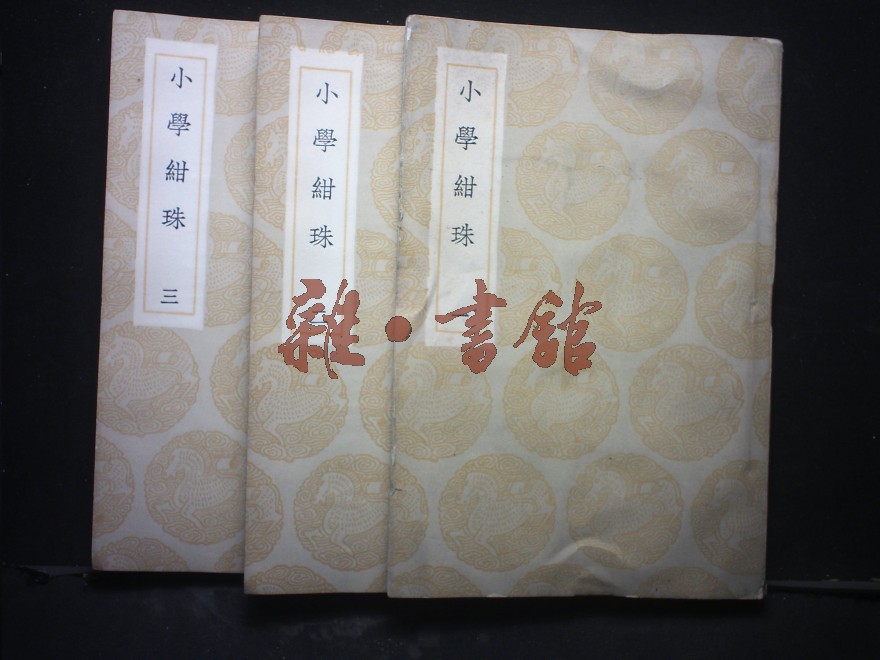 小學紺珠 三
小學紺珠
小學紺珠
雜·書館